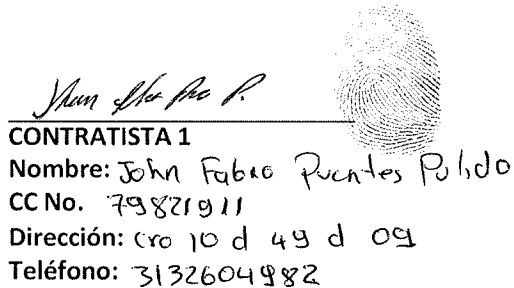 CONTRATISTA 1
Nombre: John Fabio Puentes Pulido
CC No. 79821911
Dirección: cro 10 d 49 d 09
Teléfono: 3132604982